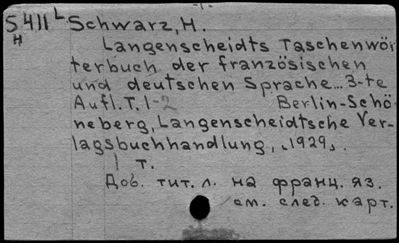 S 411 L Schwarz, H.
H
Langenscheidts Taschenwör
terbuch der französischen
und deutschen Sprache... 3-te
Aufl. T. 1-2 Berlin-Schö-
neberg, Langenscheidtsche Ver-
lagsbuchhandlung, [1929].
1 т.
Доб. тит. л. на франц. яз.
см. след. карт.